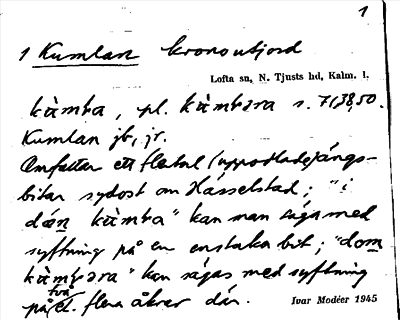 1
1 Kumlan kronoutjord
Lofta sn, N. Tjusts hd, Kalm. l.
kùmba, pl. kùmbəra s. 7, 38, 50.
Kumlan jb, jr.
Omfattar ett flertal (uppodlade) ängs-
bitar sydost om Hässelstad; "i
dän kùmba" kan man säga med
syftning på en enstaka bit; "dom
kùmbəra" kan sägas med syftning
på två el. flera åkrar där.
Ivar Modéer 1945